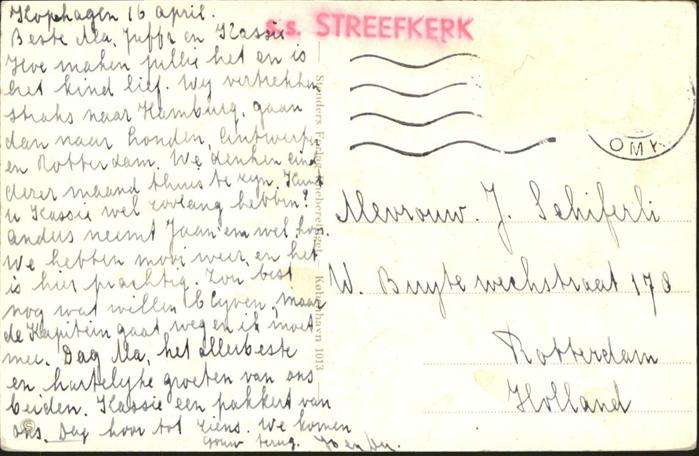 Kopnhagen 16 april.
Beste Ma, Juffr en Klassie
Hoe maken jullie het en is
het kind lief. Wy vertrekken
straks naar Hamburg, gaan
dan naar Londen, Antwerpen
en Rotterdam. We denken eind
dezer maand thuis te zyn. Kunt
u Klassie wel zoolang hebben?
anders neemt Jaan em wel.
We hebben mooi weer en het
is hier prachtig. Zou best
nog wat willen blyven, maar
de Kapitein gaat weg en ik moet
mee. Dag Ma, het allerbeste
en hartelyke groeten van ons
beiden. Klassie een pakkert van
ons. Dag hoor tot ziens. We komen
gouw terug. Jo en
s.s. STREEFKERK
OMK
Stenders Forlag Eneberettiget. København 1013
Mevrouw. J. Schiferli
W. Buytewechstraat 178
Rotterdam
Holland